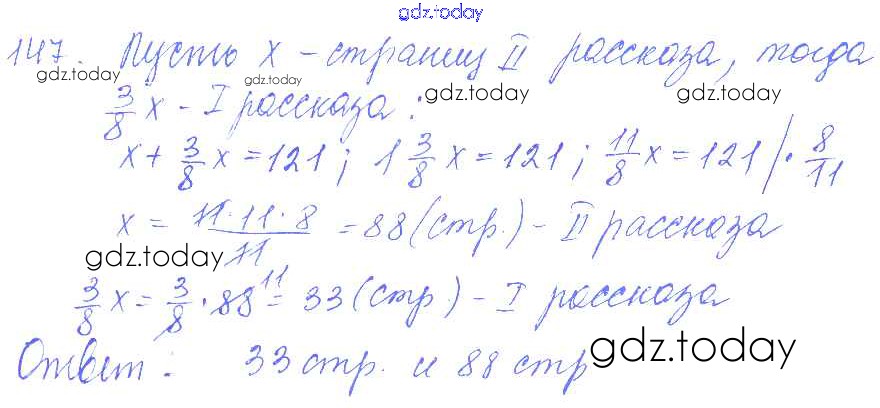 gdz.today
147. Пусть x - страниц II рассказа, тогда
gdz.today gdz.today gdz.today gdz.today
3/8 x - I рассказа:
x + 3/8 x = 121; 1 3/8 x = 121; 11/8 x = 121 | · 8/11
x = 11·11·8/11 = 88 (стр.) - II рассказа
gdz.today
3/8 x = 3/8 · 88 11 = 33 (стр.) - I рассказа
gdz.today
Ответ: 33 стр. и 88 стр